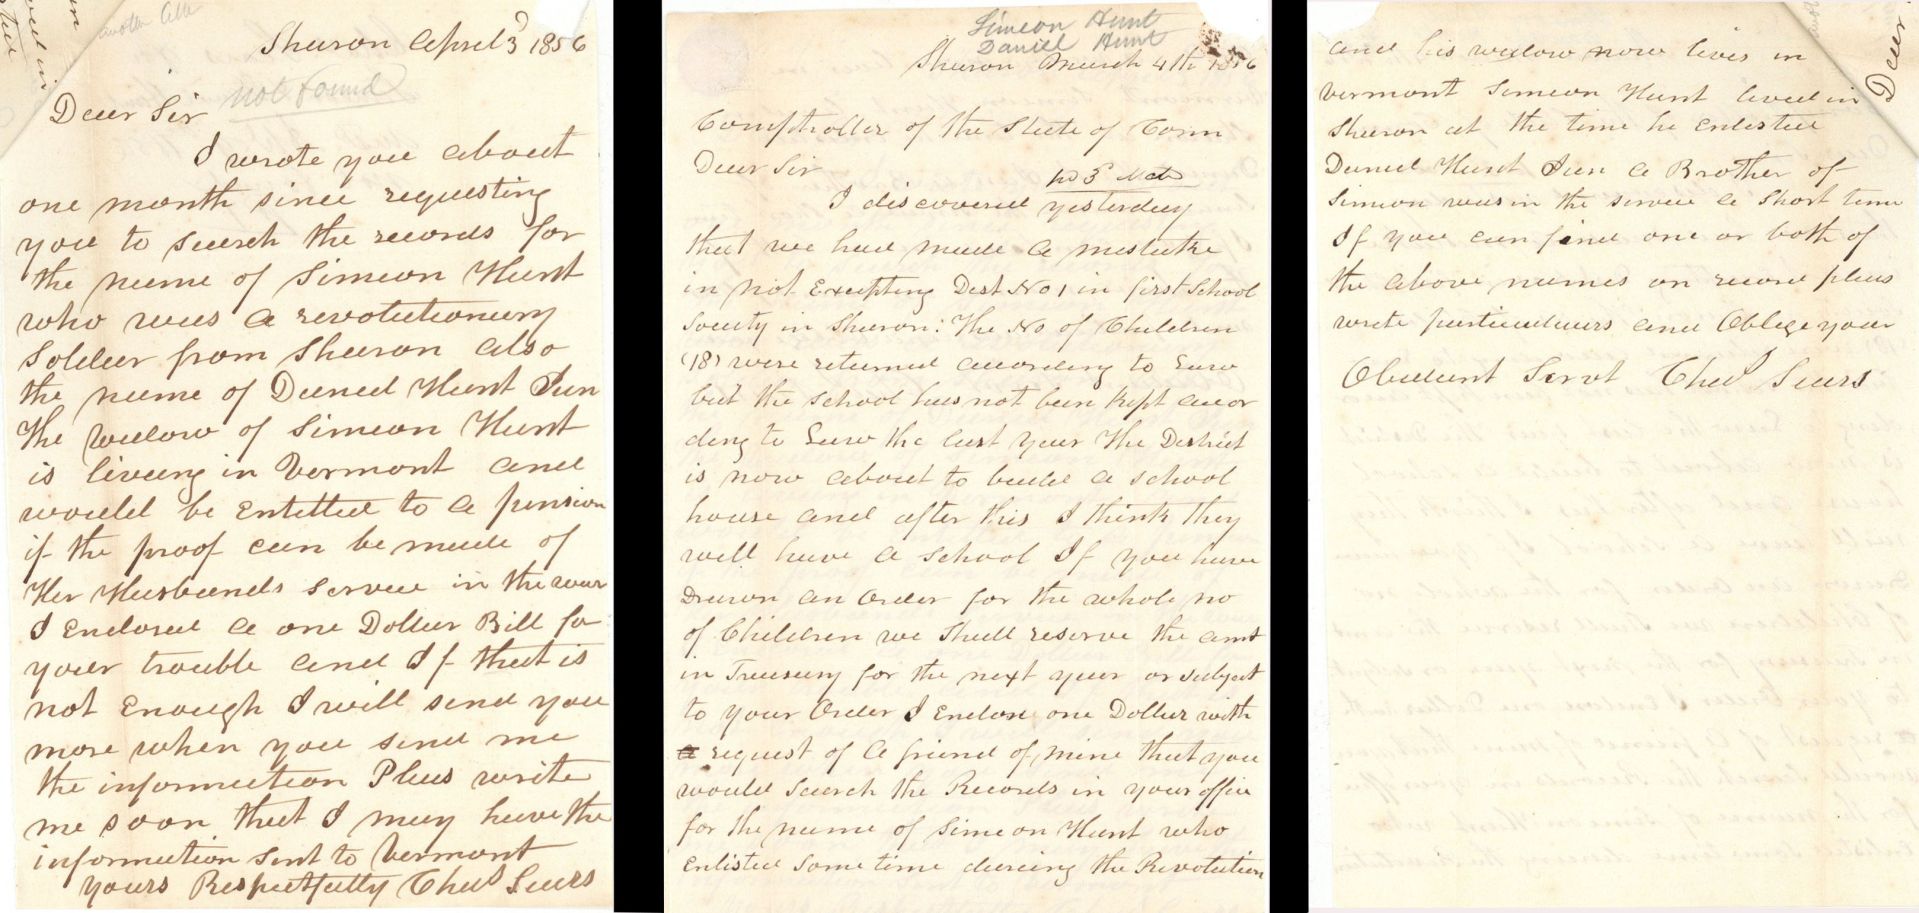 Sharon April 3d 1856
not Found
Dear Sir
I wrote you about
one month since requesting
you to search the records for
the name of Simeon Hunt
who was a revolutionary
Soldier from Sharon also
the name of Daniel Hunt Jun
The widow of Simeon Hunt
is living in Vermont and
would be Entitled to a pension
if the proof can be made of
Her Husbands service in the war
I Enclosed a one Dollar Bill for
your trouble and If that is
not Enough I will send you
more when you send me
the information Pleas write
me soon that I may have the
information sent to Vermont
yours Respectfully Chas Sears
Simeon Hunt
Daniel Hunt
Sharon March 4th 1856
Comptroller of the State of Conn
Dear Sir
I discovered yesterday
that we had made a mistake
in not Excepting Dist No 1 in first School
Society in Sharon: The No of Children
(18) were returned according to Law
but the school has not been kept accor
ding to Law the last year The District
is now about to build a school
house and after this I think they
will have a school If you have
Drawn an Order for the whole no
of Children we shall reserve the amt
in Treasury for the next year or subject
to your Order I Enclose one Dollar with
request of a friend of mine that you
would Search the Records in your office
for the name of Simeon Hunt who
Enlisted some time during the Revolution
and his widow now lives in
Vermont Simeon Hunt lived in
Sharon at the time he Enlisted
Daniel Hunt Jun a Brother of
Simeon was in the service a short time
If you can find one or both of
the above names on record pleas
write particulars and Oblige your
Obedient Servt Chas Sears
Dear